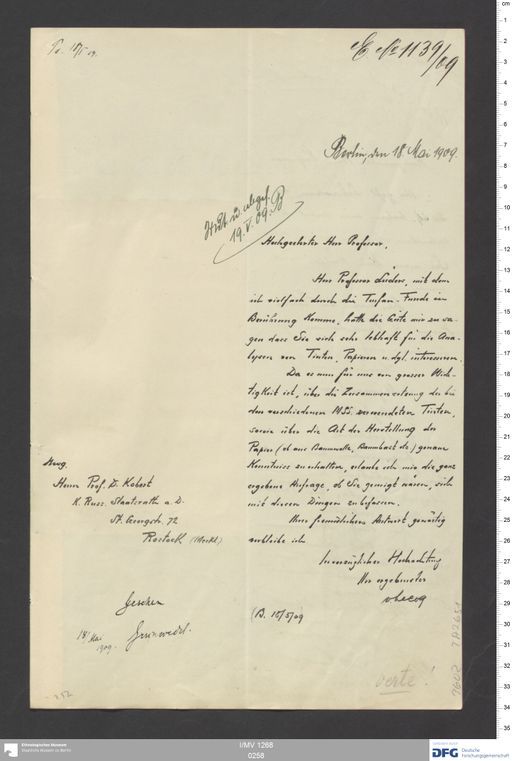 E. № 1139/09
Berlin, den 18. Mai 1909.
19. V. 09. B
Hochgeehrter Herr Professor,
Herr Professor Lüders, mit dem
ich vielfach durch die Turfan-Funde in
Berührung komme, hatte die Güte mir zu sa-
gen dass Sie sich sehr lebhaft für die Ana-
lysen von Tinten, Papieren u. dgl. interessieren.
Da es nun für uns von grosser Wich-
tigkeit ist, über die Zusammensetzung der bei
den verschiedenen MSS. verwendeten Tinten,
sowie über die Art der Herstellung des
Papier (ob aus Baumwolle, Baumbast etc.) genaue
Kenntniss zu erhalten, erlaube ich mir die ganz
ergebene Anfrage, ob Sie geneigt wären, sich
mit diesen Dingen zu befassen.
Ihrer freundlichen Antwort gewärtig
verbleibe ich
In vorzüglicher Hochachtung
Ihr ergebenster
vLecoq
(B. 18/5/09)
Herrn Prof. D. Kobert
K. Russ. Staatsrath a. D.
St. Georgstr. 72
Rostock (Meckl.)
Gesehen
18/Mai
1909.
Grünwedel.
verte!
252
Ethnologisches Museum
Staatliche Museen zu Berlin
I/MV 1268
0258
DFG Deutsche
Forschungsgemeinschaft